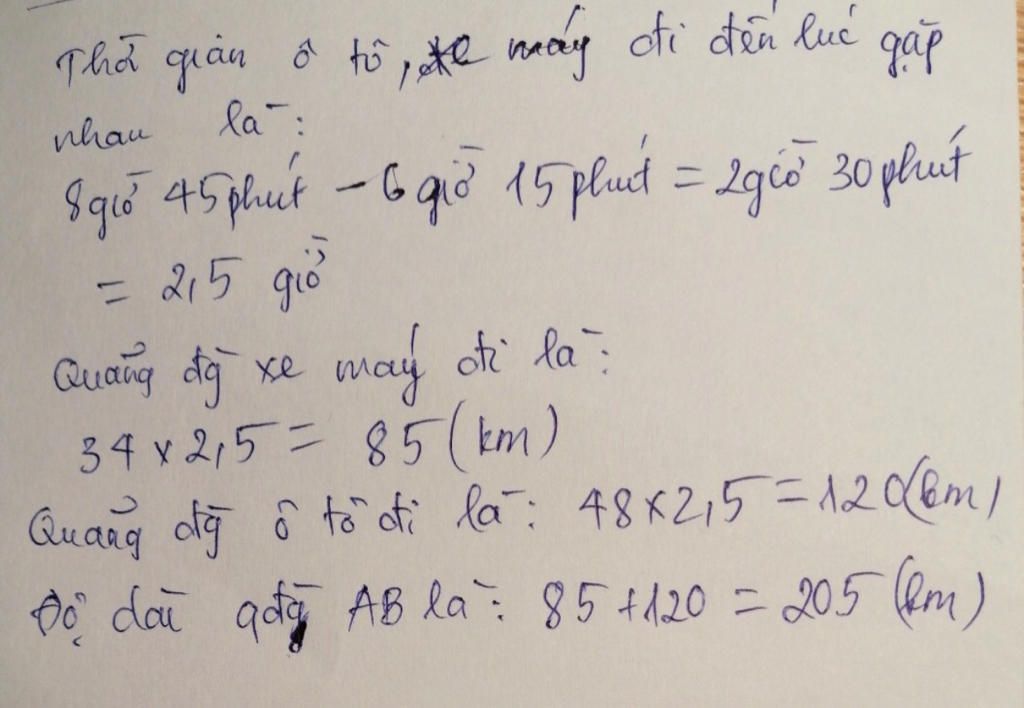 Thời gian ô tô, xe máy đi đến lúc gặp
nhau là:
8 giờ 45 phút - 6 giờ 15 phút = 2 giờ 30 phút
= 2,5 giờ
Quảng đg xe máy đi là:
34 x 2,5 = 85 (km)
Quảng đg ô tô đi là: 48 x 2,5 = 120 (km)
Độ dài qđg AB là: 85 + 120 = 205 (km)